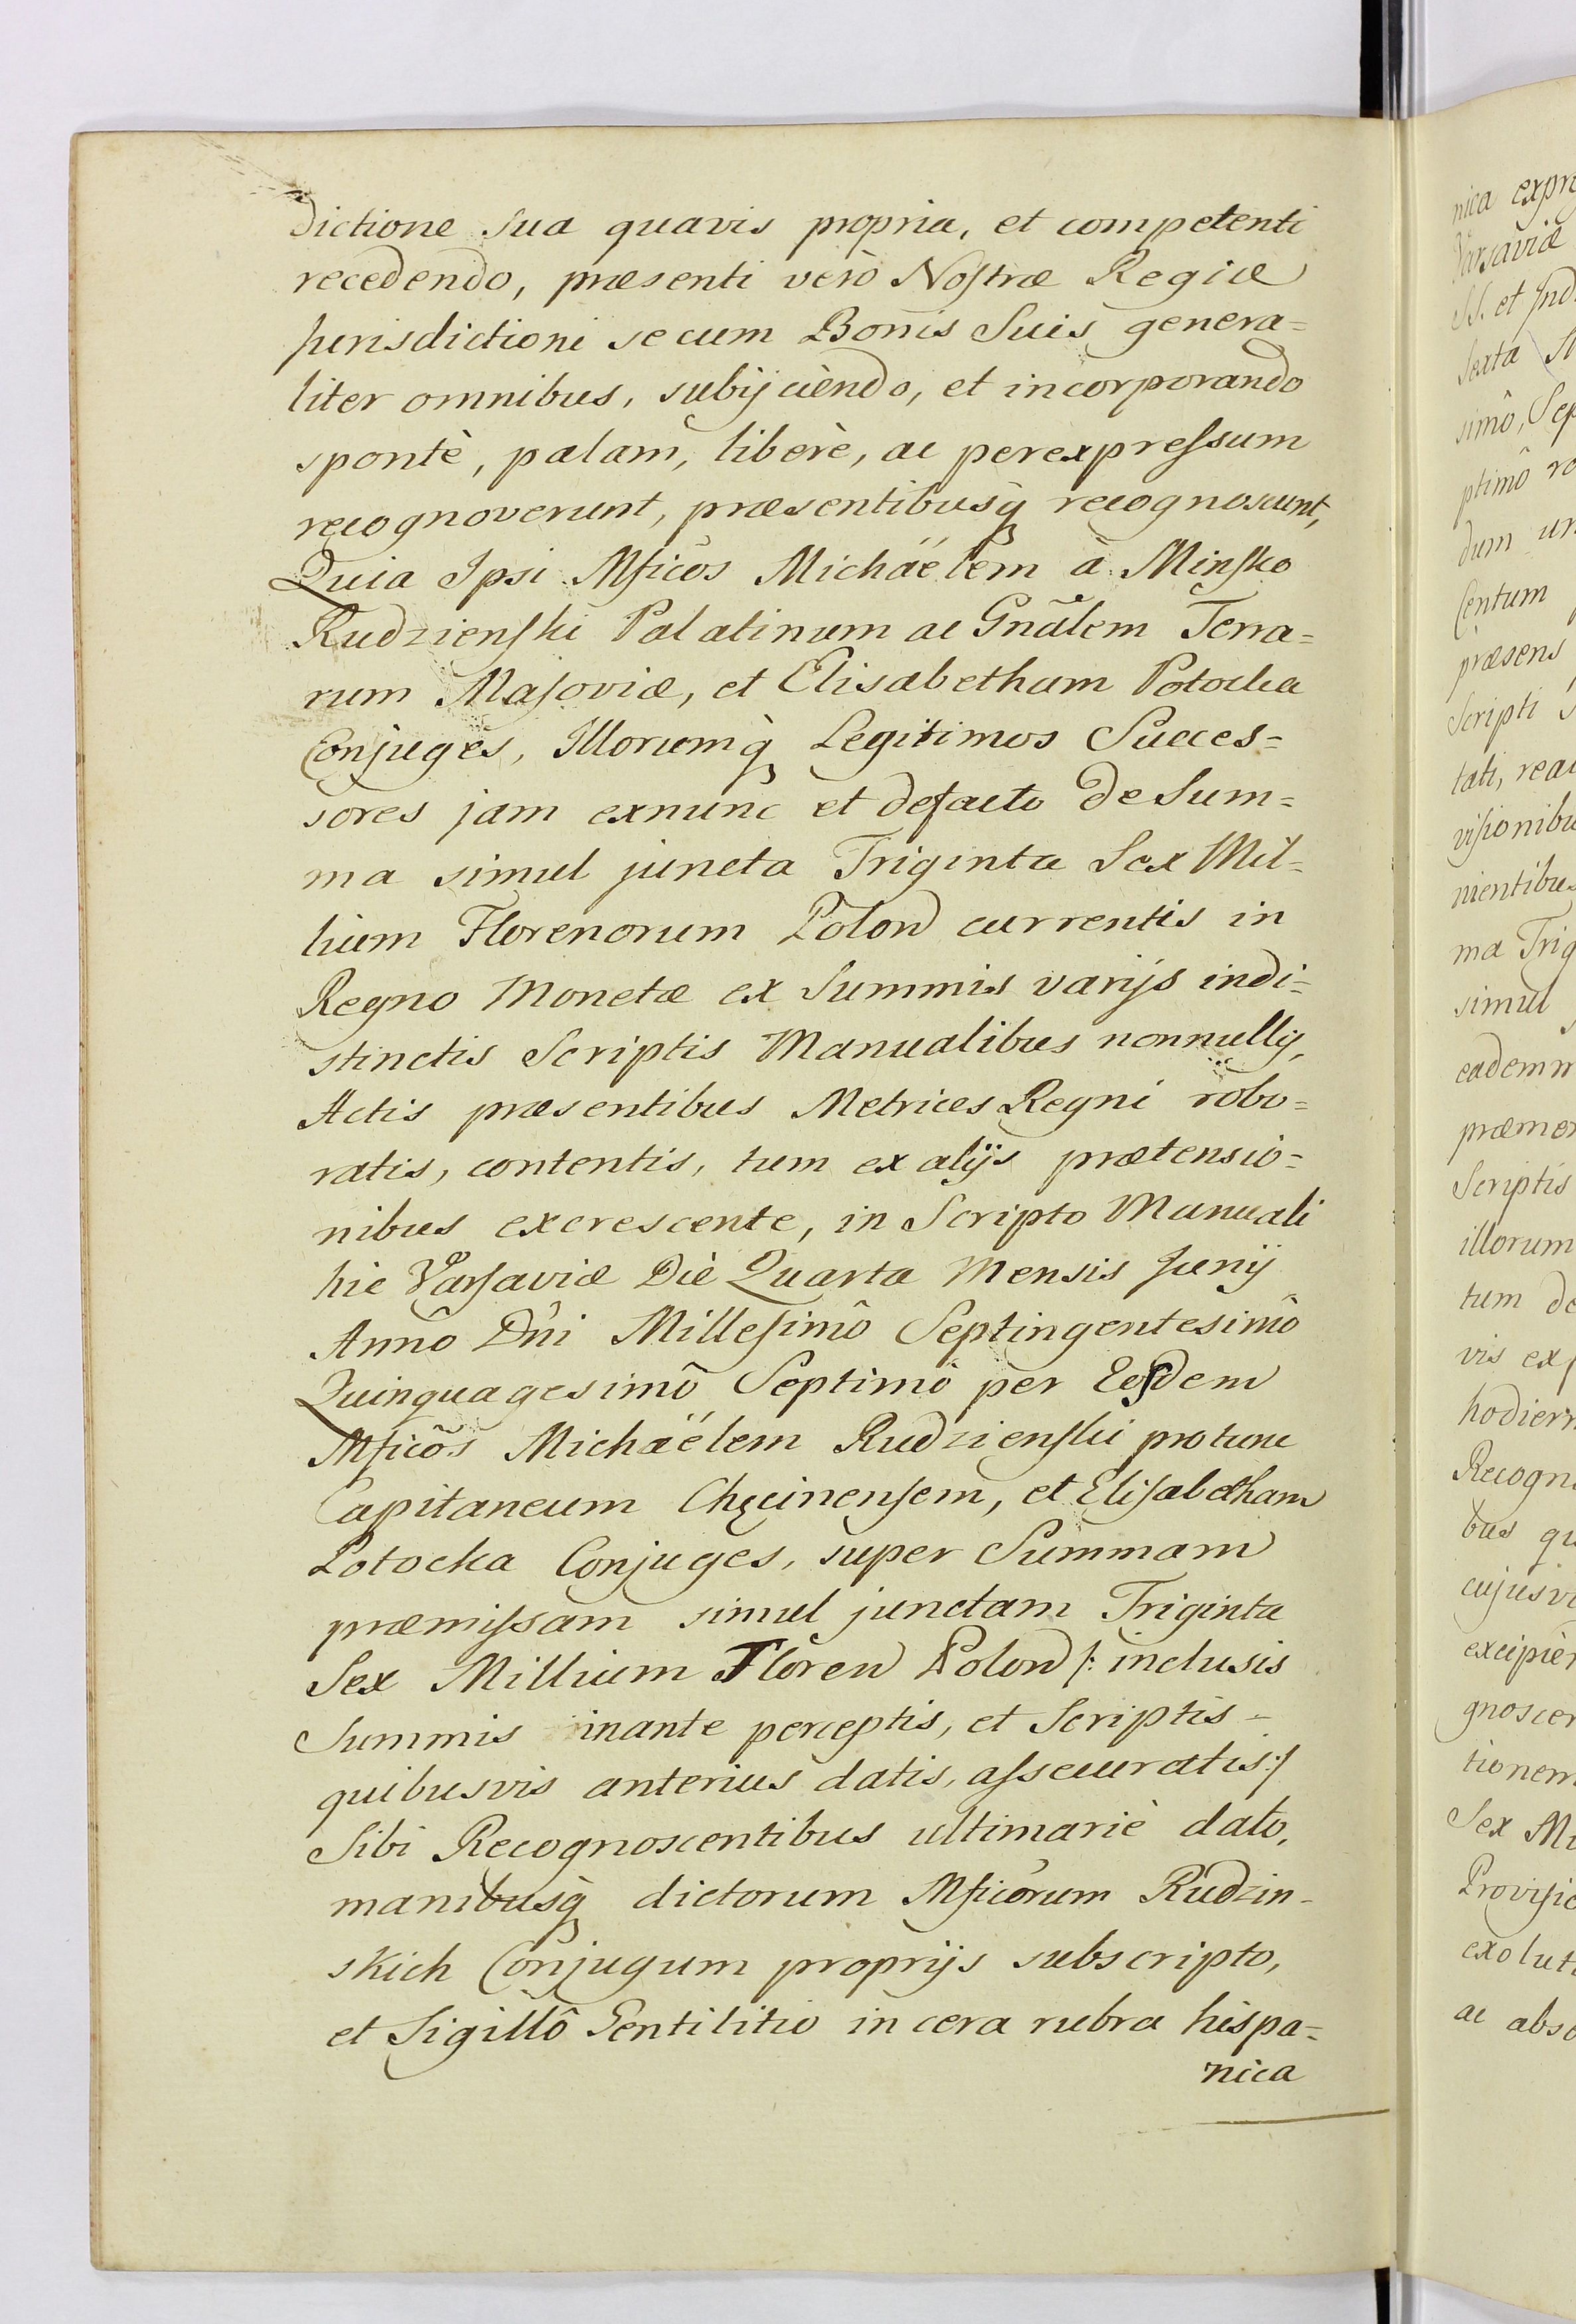 dictione sua quavis propria, et competenti
recedendo, præsenti verò Nostræ Regiæ
Jurisdictioni se cum Bonis Suis genera=
liter omnibus, subijciendo, et incorporando
spontè, palam, liberè, ac perexpressum
recognoverunt, præsentibusq̀ recognoscunt,
Quia Ipsi Mficos Michäelem à Minsko
Rudzienski Palatinum ac Gnãlem Terra=
rum Masoviæ, et Elisabetham Potocka
Conjuges, Illorumq̀ Legitimos Succes=
sores jam exnunc et defacto de Sum=
ma simul juncta Triginta Sex Mil=
lium Florenorum Polon currentis in
Regno Monetæ ex Summis varijs indi=
stinctis Scriptis Manualibus nonnullis,
Actis præsentibus Metrices Regni robo=
ratis, contentis, tum ex alijs prætensio=
nibus excrescente, in Scripto Manuali
hic Varsaviæ Diè Quarta Mensis Junij
Annô Dñi Millesimô Septingentesimô
Quinquagesimô Septimô per Eosdem
Mficõs Michäelem Rudzienski protunc
Capitaneum Chęcinensem, et Elisabetham
Potocka Conjuges, super Summam
præmissam simul junctam Triginta
Sex Millium Floren Polon /: inclusis
Summis inante perceptis, et Scriptis =
quibusvis anterius datis, assecuratis :/
Sibi Recognoscentibus ultimariè dato,
manibusq̀ dictorum Mficorum Rudzin=
skich Conjugum proprijs subscripto,
et Sigillô Gentilitio in cera rubra hispa=
nica
nica
Varsaviæ
SS. et Ind
Sexta
simô, Sep
ptimô ro
dum un
Centum
præsens
Scripti
tati, rea
visionibu
nientibus
ma Trig
simul
eadem
præmo
Scriptis
illorum
tum de
vis ex
hodiern
Recogn
bus qu
cujusvi
excipien
gnoscen
tionem
Sex Mi
Provisio
exolut
ac abso